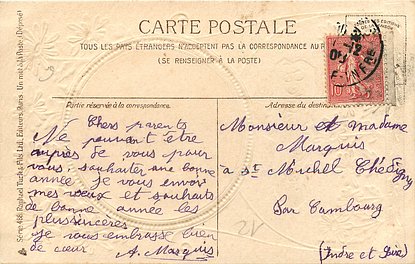 CARTE POSTALE
TOUS LES PAYS ÉTRANGERS N'ACCEPTENT PAS LA CORRESPONDANCE AU
(SE RENSEIGNER À LA POSTE)
Partie réservée à la correspondance.
Chers parents
Ne pouvant être
auprès de vous pour
vous souhaiter une bonne
année je vous envois
mes vœux et souhaits
de bonne année les
plus sincères
je vous embrasse bien
de cœur A. Marquis
Adresse du
Monsieur et madame
Marquis
à St Michel Chédigny
Par Cambourg
(Indre et Loire)
Série 466 Raphael Tuck & Fils Ltd. Editeurs Paris